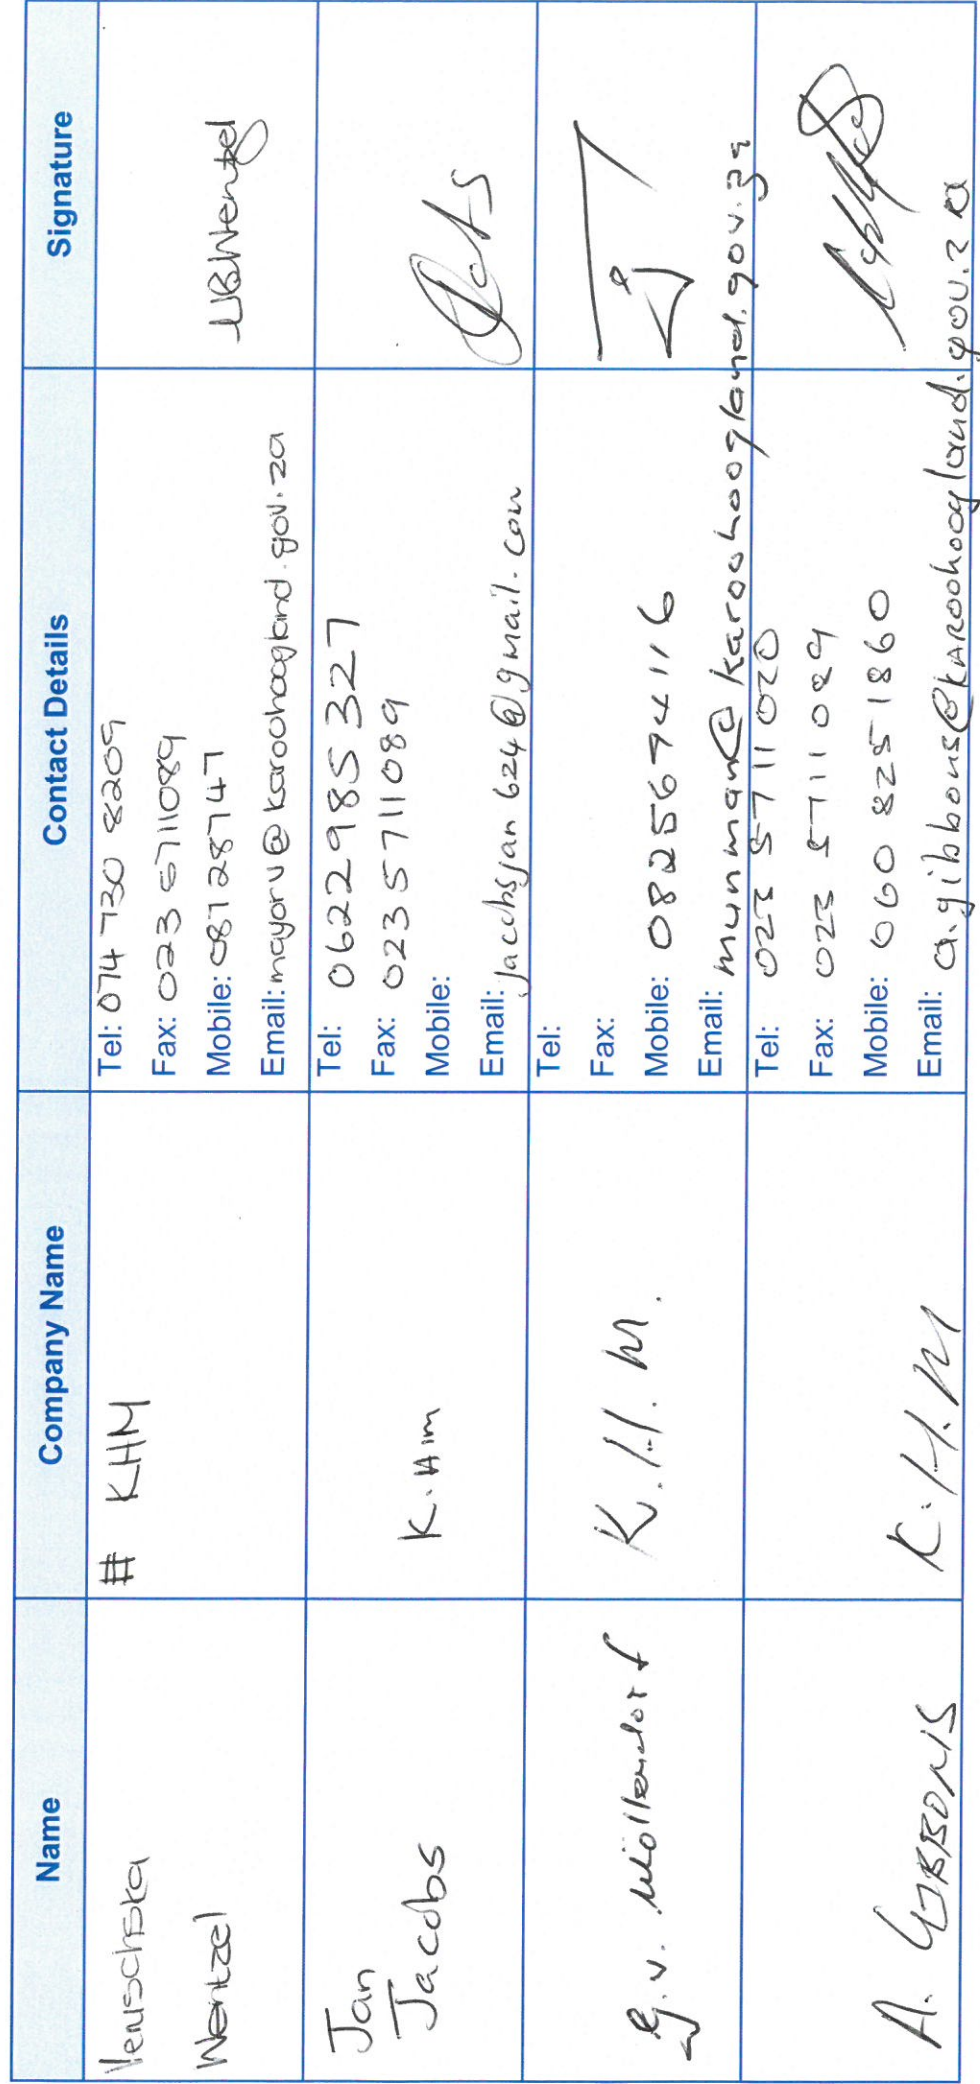 Name Company Name Contact Details Signature
Venuschka
Wentzel
# KHM
Tel: 074 730 8209
Fax: 023 5711089
Mobile: 0817128747
Email: mayorv@karoohoogland.gov.za
Jan
Jacobs
K.Hm
Tel: 0622985327
Fax: 023 5711089
Mobile:
Email: Jacobsjan624@gmail.com
G.v. Möllendorf
K.H.M.
Tel:
Fax:
Mobile: 08256794116
Email: munman@karoohoogland.gov.za
A. GIBBONS
K.H.M
Tel: 023 5711020
Fax: 023 5711089
Mobile: 060 8251860
Email: a.gibbons@KAROOhoogland.gov.za